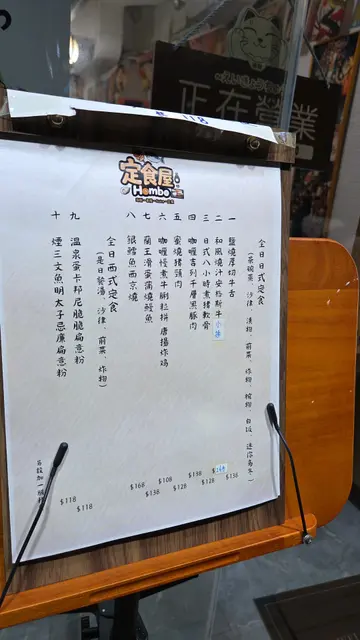 $118
正在營業
定食屋
Hombo
全日日式定食
(茶碗蒸、沙律、漬物、前菜、炸物、檳物、白飯、迷你烏冬)
一 鹽燒厚切牛舌 $138
二 和風燒汁安格斯牛小排 $168
三 日式八小時煮豬軟骨 $128
四 咖喱吉列千層黑豚肉 $138
五 蜜燒豬頸肉 $128
六 咖喱慢煮牛脷粒拼唐揚炸鴇 $108
七 蘭王滑蛋蒲燒鰻魚 $138
八 銀鱈魚西京燒 $168
全日西式定食
(是日餐湯、沙律、前菜、炸物)
九 溫泉蛋卡邦尼脆脆扁意粉 $118
十 煙三文魚明太子忌廉扁意粉 $118